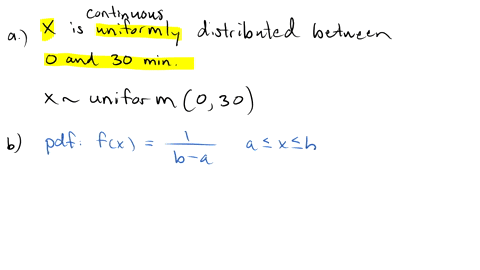 continuous
a.) X is uniformly distributed between
0 and 30 min.
X ~ uniform (0,30)
b) pdf: f(x) = 1/(b-a) a ≤ x ≤ b